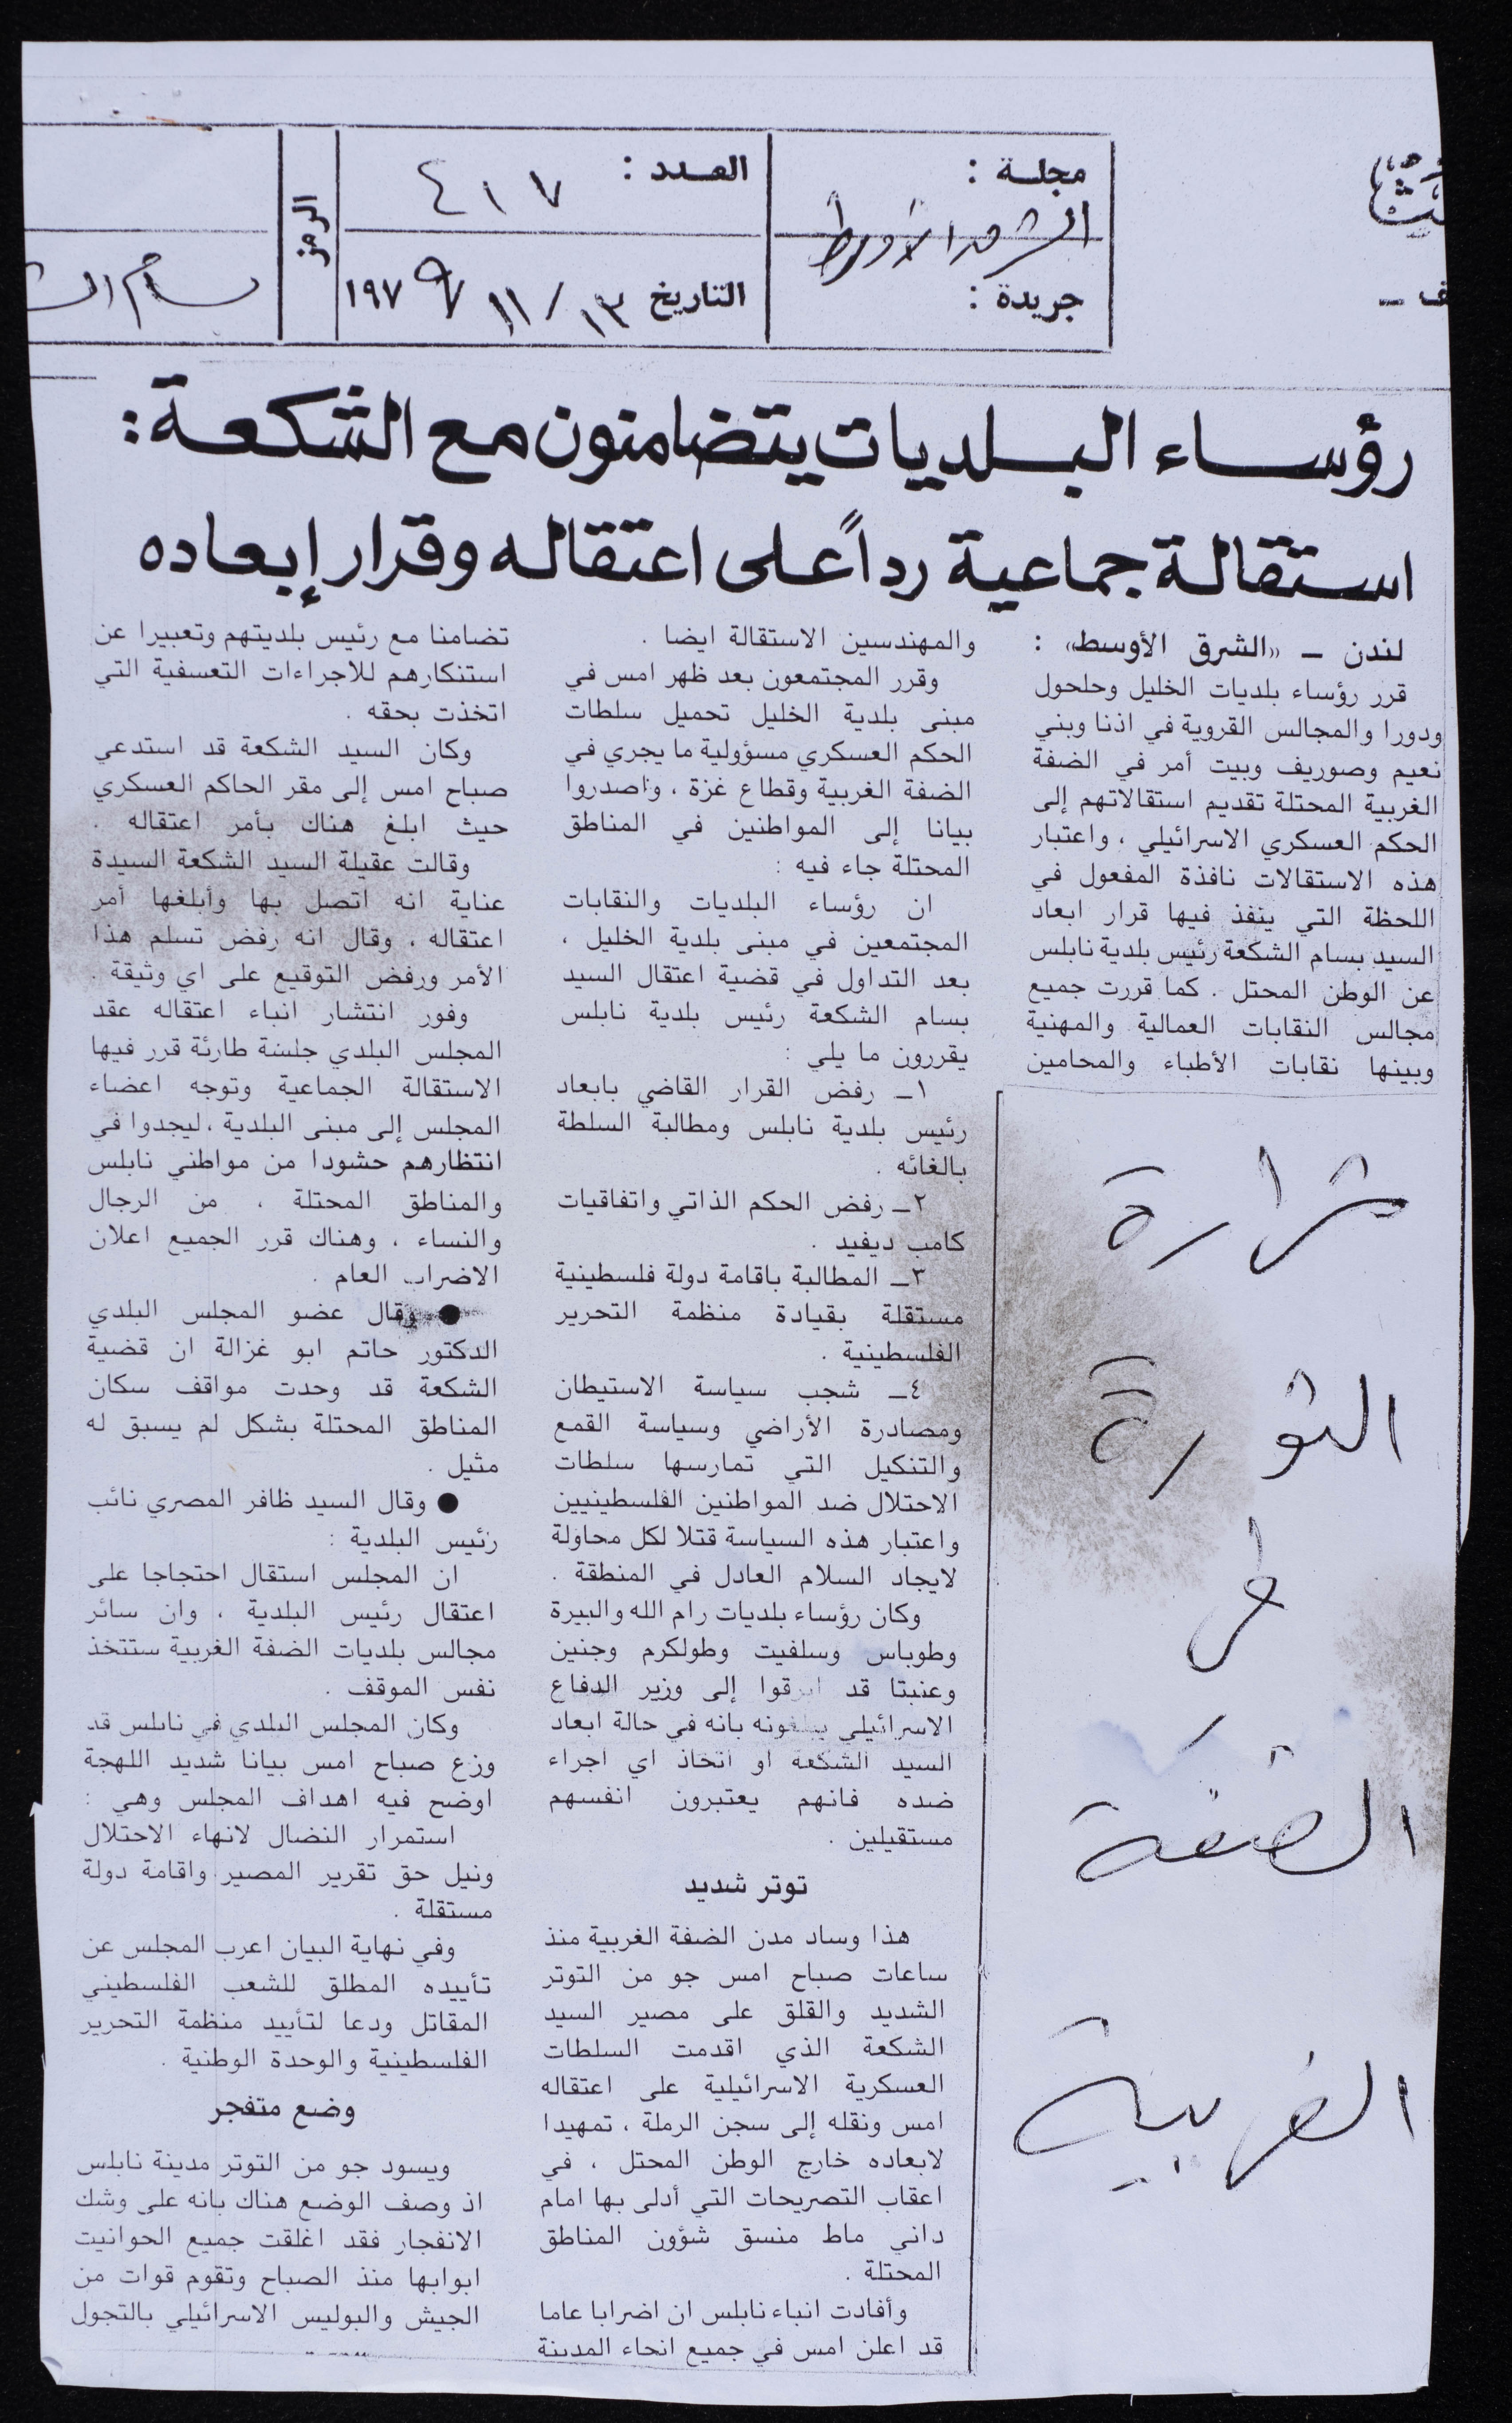 مجلة :
الشرق الأوسط
جريدة :
العدد : ٤١٧
التاريخ ١٣ / ١١ ١٩٧٩
الرمز
رؤساء البلديات يتضامنون مع الشكعة :
استقالة جماعية رداً على اعتقاله وقرار إبعاده
لندن ــ «الشرق الأوسط» :
قرر رؤساء بلديات الخليل وحلحول
ودورا والمجالس القروية في اذنا وبني
نعيم وصوريف وبيت أمر في الضفة
الغربية المحتلة تقديم استقالاتهم إلى
الحكم العسكري الاسرائيلي ، واعتبار
هذه الاستقالات نافذة المفعول في
اللحظة التي ينفذ فيها قرار ابعاد
السيد بسام الشكعة رئيس بلدية نابلس
عن الوطن المحتل . كما قررت جميع
مجالس النقابات العمالية والمهنية
وبينها نقابات الأطباء والمحامين
شرارة
الثورة
الضفة
الغربية
والمهندسين الاستقالة ايضا .
وقرر المجتمعون بعد ظهر امس في
مبنى بلدية الخليل تحميل سلطات
الحكم العسكري مسؤولية ما يجري في
الضفة الغربية وقطاع غزة ، واصدروا
بيانا إلى المواطنين في المناطق
المحتلة جاء فيه :
ان رؤساء البلديات والنقابات
المجتمعين في مبنى بلدية الخليل ،
بعد التداول في قضية اعتقال السيد
بسام الشكعة رئيس بلدية نابلس
يقررون ما يلي :
١ــ رفض القرار القاضي بابعاد
رئيس بلدية نابلس ومطالبة السلطة
بالغائه .
٢ــ رفض الحكم الذاتي واتفاقيات
كامب ديفيد .
٣ــ المطالبة باقامة دولة فلسطينية
مستقلة بقيادة منظمة التحرير
الفلسطينية .
٤ــ شجب سياسة الاستيطان
ومصادرة الأراضي وسياسة القمع
والتنكيل التي تمارسها سلطات
الاحتلال ضد المواطنين الفلسطينيين
واعتبار هذه السياسة قتلا لكل محاولة
لايجاد السلام العادل في المنطقة .
وكان رؤساء بلديات رام الله والبيرة
وطوباس وسلفيت وطولكرم وجنين
وعنبتا قد ابرقوا إلى وزير الدفاع
الاسرائيلي يبلغونه بانه في حالة ابعاد
السيد الشكعة او اتخاذ اي اجراء
ضده فانهم يعتبرون انفسهم
مستقيلين .
توتر شديد
هذا وساد مدن الضفة الغربية منذ
ساعات صباح امس جو من التوتر
الشديد والقلق على مصير السيد
الشكعة الذي اقدمت السلطات
العسكرية الاسرائيلية على اعتقاله
امس ونقله إلى سجن الرملة ، تمهيدا
لابعاده خارج الوطن المحتل ، في
اعقاب التصريحات التي أدلى بها امام
داني ماط منسق شؤون المناطق
المحتلة .
وأفادت انباء نابلس ان اضرابا عاما
قد اعلن امس في جميع انحاء المدينة
تضامنا مع رئيس بلديتهم وتعبيرا عن
استنكارهم للاجراءات التعسفية التي
اتخذت بحقه .
وكان السيد الشكعة قد استدعي
صباح امس إلى مقر الحاكم العسكري
حيث ابلغ هناك بأمر اعتقاله .
وقالت عقيلة السيد الشكعة السيدة
عناية انه اتصل بها وأبلغها أمر
اعتقاله ، وقال انه رفض تسلم هذا
الأمر ورفض التوقيع على اي وثيقة .
وفور انتشار انباء اعتقاله عقد
المجلس البلدي جلسة طارئة قرر فيها
الاستقالة الجماعية وتوجه اعضاء
المجلس إلى مبنى البلدية ، ليجدوا في
انتظارهم حشودا من مواطني نابلس
والمناطق المحتلة ، من الرجال
والنساء ، وهناك قرر الجميع اعلان
الاضراب العام .
● وقال عضو المجلس البلدي
الدكتور حاتم ابو غزالة ان قضية
الشكعة قد وحدت مواقف سكان
المناطق المحتلة بشكل لم يسبق له
مثيل .
● وقال السيد ظافر المصري نائب
رئيس البلدية :
ان المجلس استقال احتجاجا على
اعتقال رئيس البلدية ، وان سائر
مجالس بلديات الضفة الغربية ستتخذ
نفس الموقف .
وكان المجلس البلدي في نابلس قد
وزع صباح امس بيانا شديد اللهجة
اوضح فيه اهداف المجلس وهي :
استمرار النضال لانهاء الاحتلال
ونيل حق تقرير المصير واقامة دولة
مستقلة .
وفي نهاية البيان اعرب المجلس عن
تأييده المطلق للشعب الفلسطيني
المقاتل ودعا لتأييد منظمة التحرير
الفلسطينية والوحدة الوطنية .
وضع متفجر
ويسود جو من التوتر مدينة نابلس
اذ وصف الوضع هناك بانه على وشك
الانفجار فقد اغلقت جميع الحوانيت
ابوابها منذ الصباح وتقوم قوات من
الجيش والبوليس الاسرائيلي بالتجول